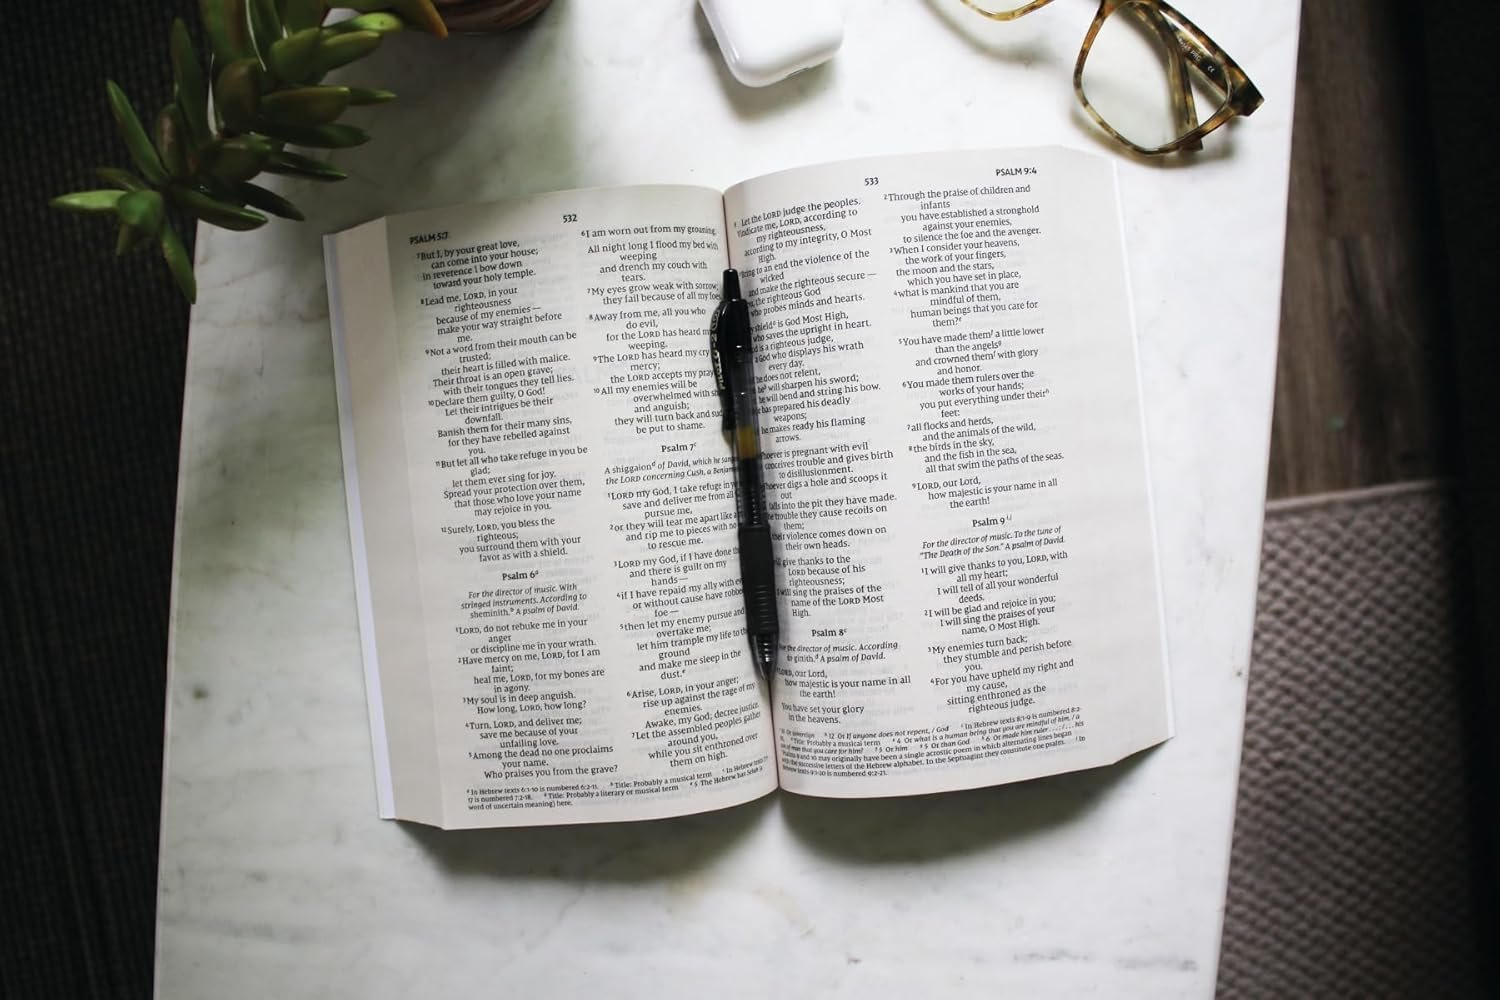 532
PSALM 5:7
7But I, by your great love,
can come into your house;
in reverence I bow down
toward your holy temple.
8Lead me, LORD, in your
righteousness
because of my enemies—
make your way straight before
me.
9Not a word from their mouth can be
trusted;
their heart is filled with malice.
Their throat is an open grave;
with their tongues they tell lies.
10Declare them guilty, O God!
Let their intrigues be their
downfall.
Banish them for their many sins,
for they have rebelled against
you.
11But let all who take refuge in you be
glad;
let them ever sing for joy.
Spread your protection over them,
that those who love your name
may rejoice in you.
12Surely, LORD, you bless the
righteous;
you surround them with your
favor as with a shield.
Psalm 6a
For the director of music. With
stringed instruments. According to
sheminith.b A psalm of David.
1LORD, do not rebuke me in your
anger
or discipline me in your wrath.
2Have mercy on me, LORD, for I am
faint;
heal me, LORD, for my bones are
in agony.
3My soul is in deep anguish.
How long, LORD, how long?
4Turn, LORD, and deliver me;
save me because of your
unfailing love.
5Among the dead no one proclaims
your name.
Who praises you from the grave?
6I am worn out from my groaning.
All night long I flood my bed with
weeping
and drench my couch with
tears.
7My eyes grow weak with sorrow;
they fail because of all my foes.
8Away from me, all you who
do evil,
for the LORD has heard my
weeping.
9The LORD has heard my cry
mercy;
the LORD accepts my pray
10All my enemies will be
overwhelmed with
and anguish;
they will turn back and
be put to shame.
Psalm 7c
A shiggaiond of David, which he sang
the LORD concerning Cush, a Benjam
1LORD my God, I take refuge in
save and deliver me from all
pursue me,
2or they will tear me apart like a
and rip me to pieces with no
to rescue me.
3LORD my God, if I have done
and there is guilt on my
hands—
4if I have repaid my ally with
or without cause have robbed
foe—
5then let my enemy pursue and
overtake me;
let him trample my life to the
ground
and make me sleep in the
dust.e
6Arise, LORD, in your anger;
rise up against the rage of my
enemies.
Awake, my God; decree justice.
7Let the assembled peoples gather
around you,
while you sit enthroned over
them on high.
a In Hebrew texts 6:1-10 is numbered 6:2-11. b Title: Probably a musical term c In Hebrew texts
17 is numbered 7:2-18. d Title: Probably a literary or musical term e 5 The Hebrew has Selah
word of uncertain meaning) here.
533
PSALM 9:4
Let the LORD judge the peoples.
Vindicate me, LORD, according to
my righteousness,
according to my integrity, O Most
High.
Bring to an end the violence of the
wicked
and make the righteous secure—
the righteous God
who probes minds and hearts.
shield is God Most High,
who saves the upright in heart.
is a righteous judge,
a God who displays his wrath
every day.
he does not relent,
he will sharpen his sword;
he will bend and string his bow.
has prepared his deadly
weapons;
he makes ready his flaming
arrows.
Whoever is pregnant with evil
conceives trouble and gives birth
to disillusionment.
Whoever digs a hole and scoops it
out
falls into the pit they have made.
The trouble they cause recoils on
them;
their violence comes down on
their own heads.
will give thanks to the
LORD because of his
righteousness;
I will sing the praises of the
name of the LORD Most
High.
Psalm 8c
For the director of music. According
to gittith.d A psalm of David.
LORD, our Lord,
how majestic is your name in all
the earth!
You have set your glory
in the heavens.
2Through the praise of children and
infants
you have established a stronghold
against your enemies,
to silence the foe and the avenger.
3When I consider your heavens,
the work of your fingers,
the moon and the stars,
which you have set in place,
4what is mankind that you are
mindful of them,
human beings that you care for
them?e
5You have made themf a little lower
than the angelsg
and crowned themf with glory
and honor.
6You made them rulers over the
works of your hands;
you put everything under theirh
feet:
7all flocks and herds,
and the animals of the wild,
8the birds in the sky,
and the fish in the sea,
all that swim the paths of the seas.
9LORD, our Lord,
how majestic is your name in all
the earth!
Psalm 9i,j
For the director of music. To the tune of
"The Death of the Son." A psalm of David.
1I will give thanks to you, LORD, with
all my heart;
I will tell of all your wonderful
deeds.
2I will be glad and rejoice in you;
I will sing the praises of your
name, O Most High.
3My enemies turn back;
they stumble and perish before
you.
4For you have upheld my right and
my cause,
sitting enthroned as the
righteous judge.
Or sovereign b 12 Or If anyone does not repent, / God c In Hebrew texts 8:1-9 is numbered 8:2-
d Title: Probably a musical term e 4 Or what is a human being that you are mindful of him, / a
son of man that you care for him? f 5 Or him g 5 Or than God h 6 Or made him ruler . . . ; / . . . his
Psalms 9 and 10 may originally have been a single acrostic poem in which alternating lines began
with the successive letters of the Hebrew alphabet. In the Septuagint they constitute one psalm. j In
Hebrew texts 9:1-20 is numbered 9:2-21.